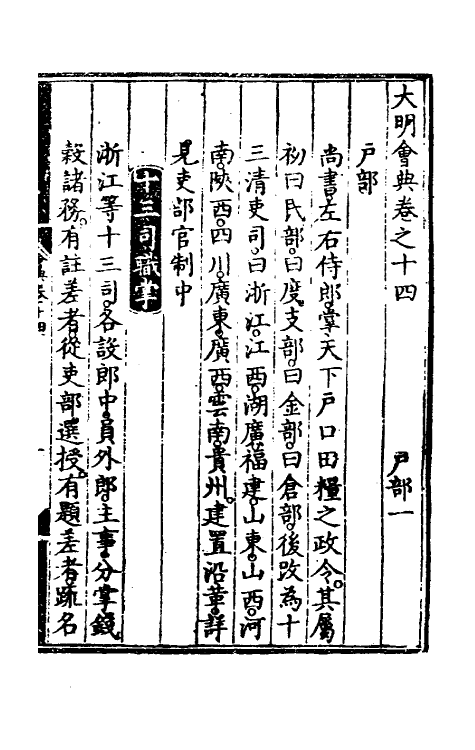 大明會典卷之十四　戶部一
戶部
尚書左右侍郎掌天下戶口田糧之政令其屬
初曰民部曰度支部曰金部曰倉部後改為十
三清吏司曰浙江江西湖廣福建山東山西河
南陝西四川廣東廣西雲南貴州建置沿革詳
見吏部官制中
十三司職掌
浙江等十三司各設郎中員外郎主事分掌錢
穀諸務有註差者從吏部選授有題差者疏名